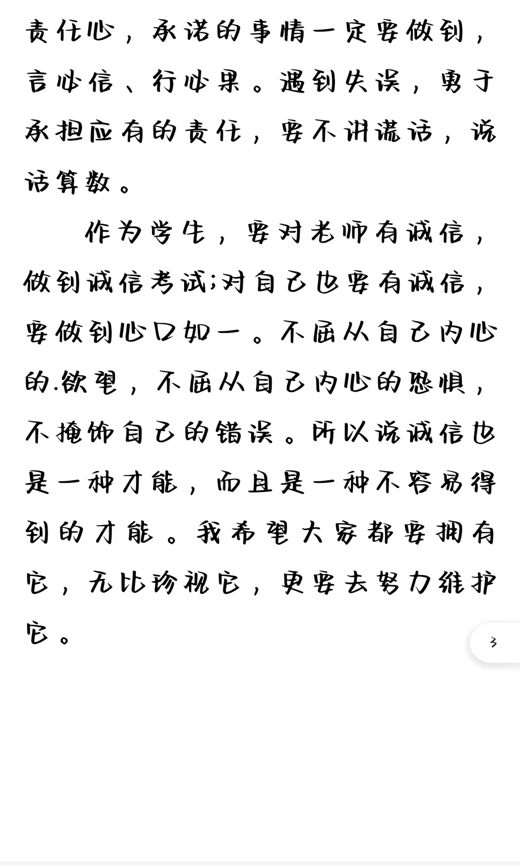 责任心，承诺的事情一定要做到，
言必信、行必果。遇到失误，勇于
承担应有的责任，要不讲谎话，说
话算数。
作为学生，要对老师有诚信，
做到诚信考试;对自己也要有诚信，
要做到心口如一。不屈从自己内心
的.欲望，不屈从自己内心的恐惧，
不掩饰自己的错误。所以说诚信也
是一种才能，而且是一种不容易得
到的才能。我希望大家都要拥有
它，无比珍视它，更要去努力维护
它。
3